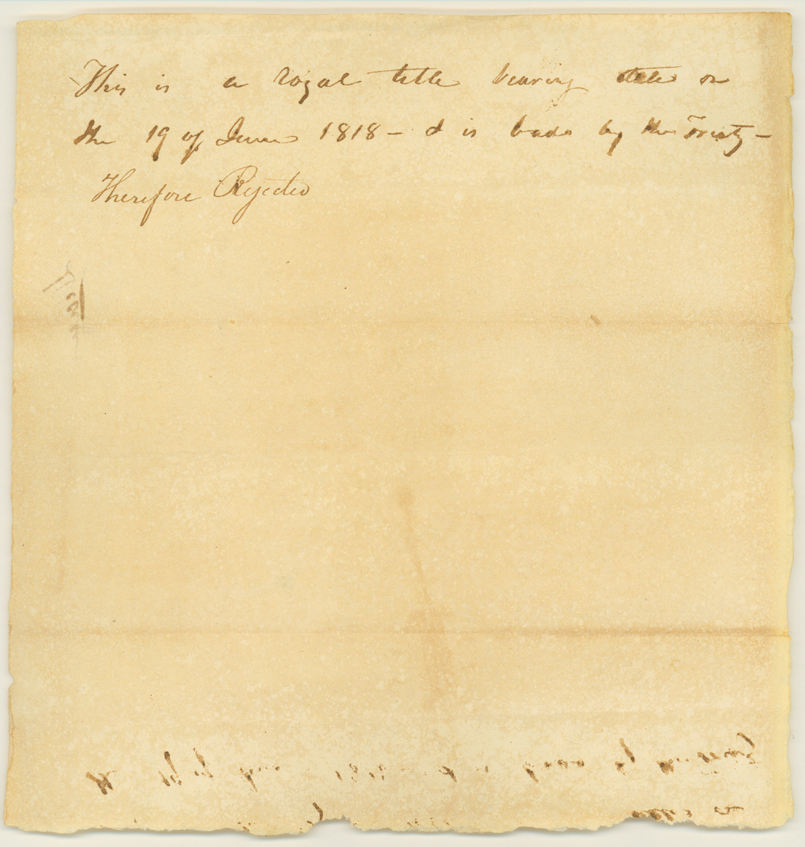 This is a royal title bearing date on
the 19 of June 1818 – & is bad by the Treaty –
Therefore Rejected